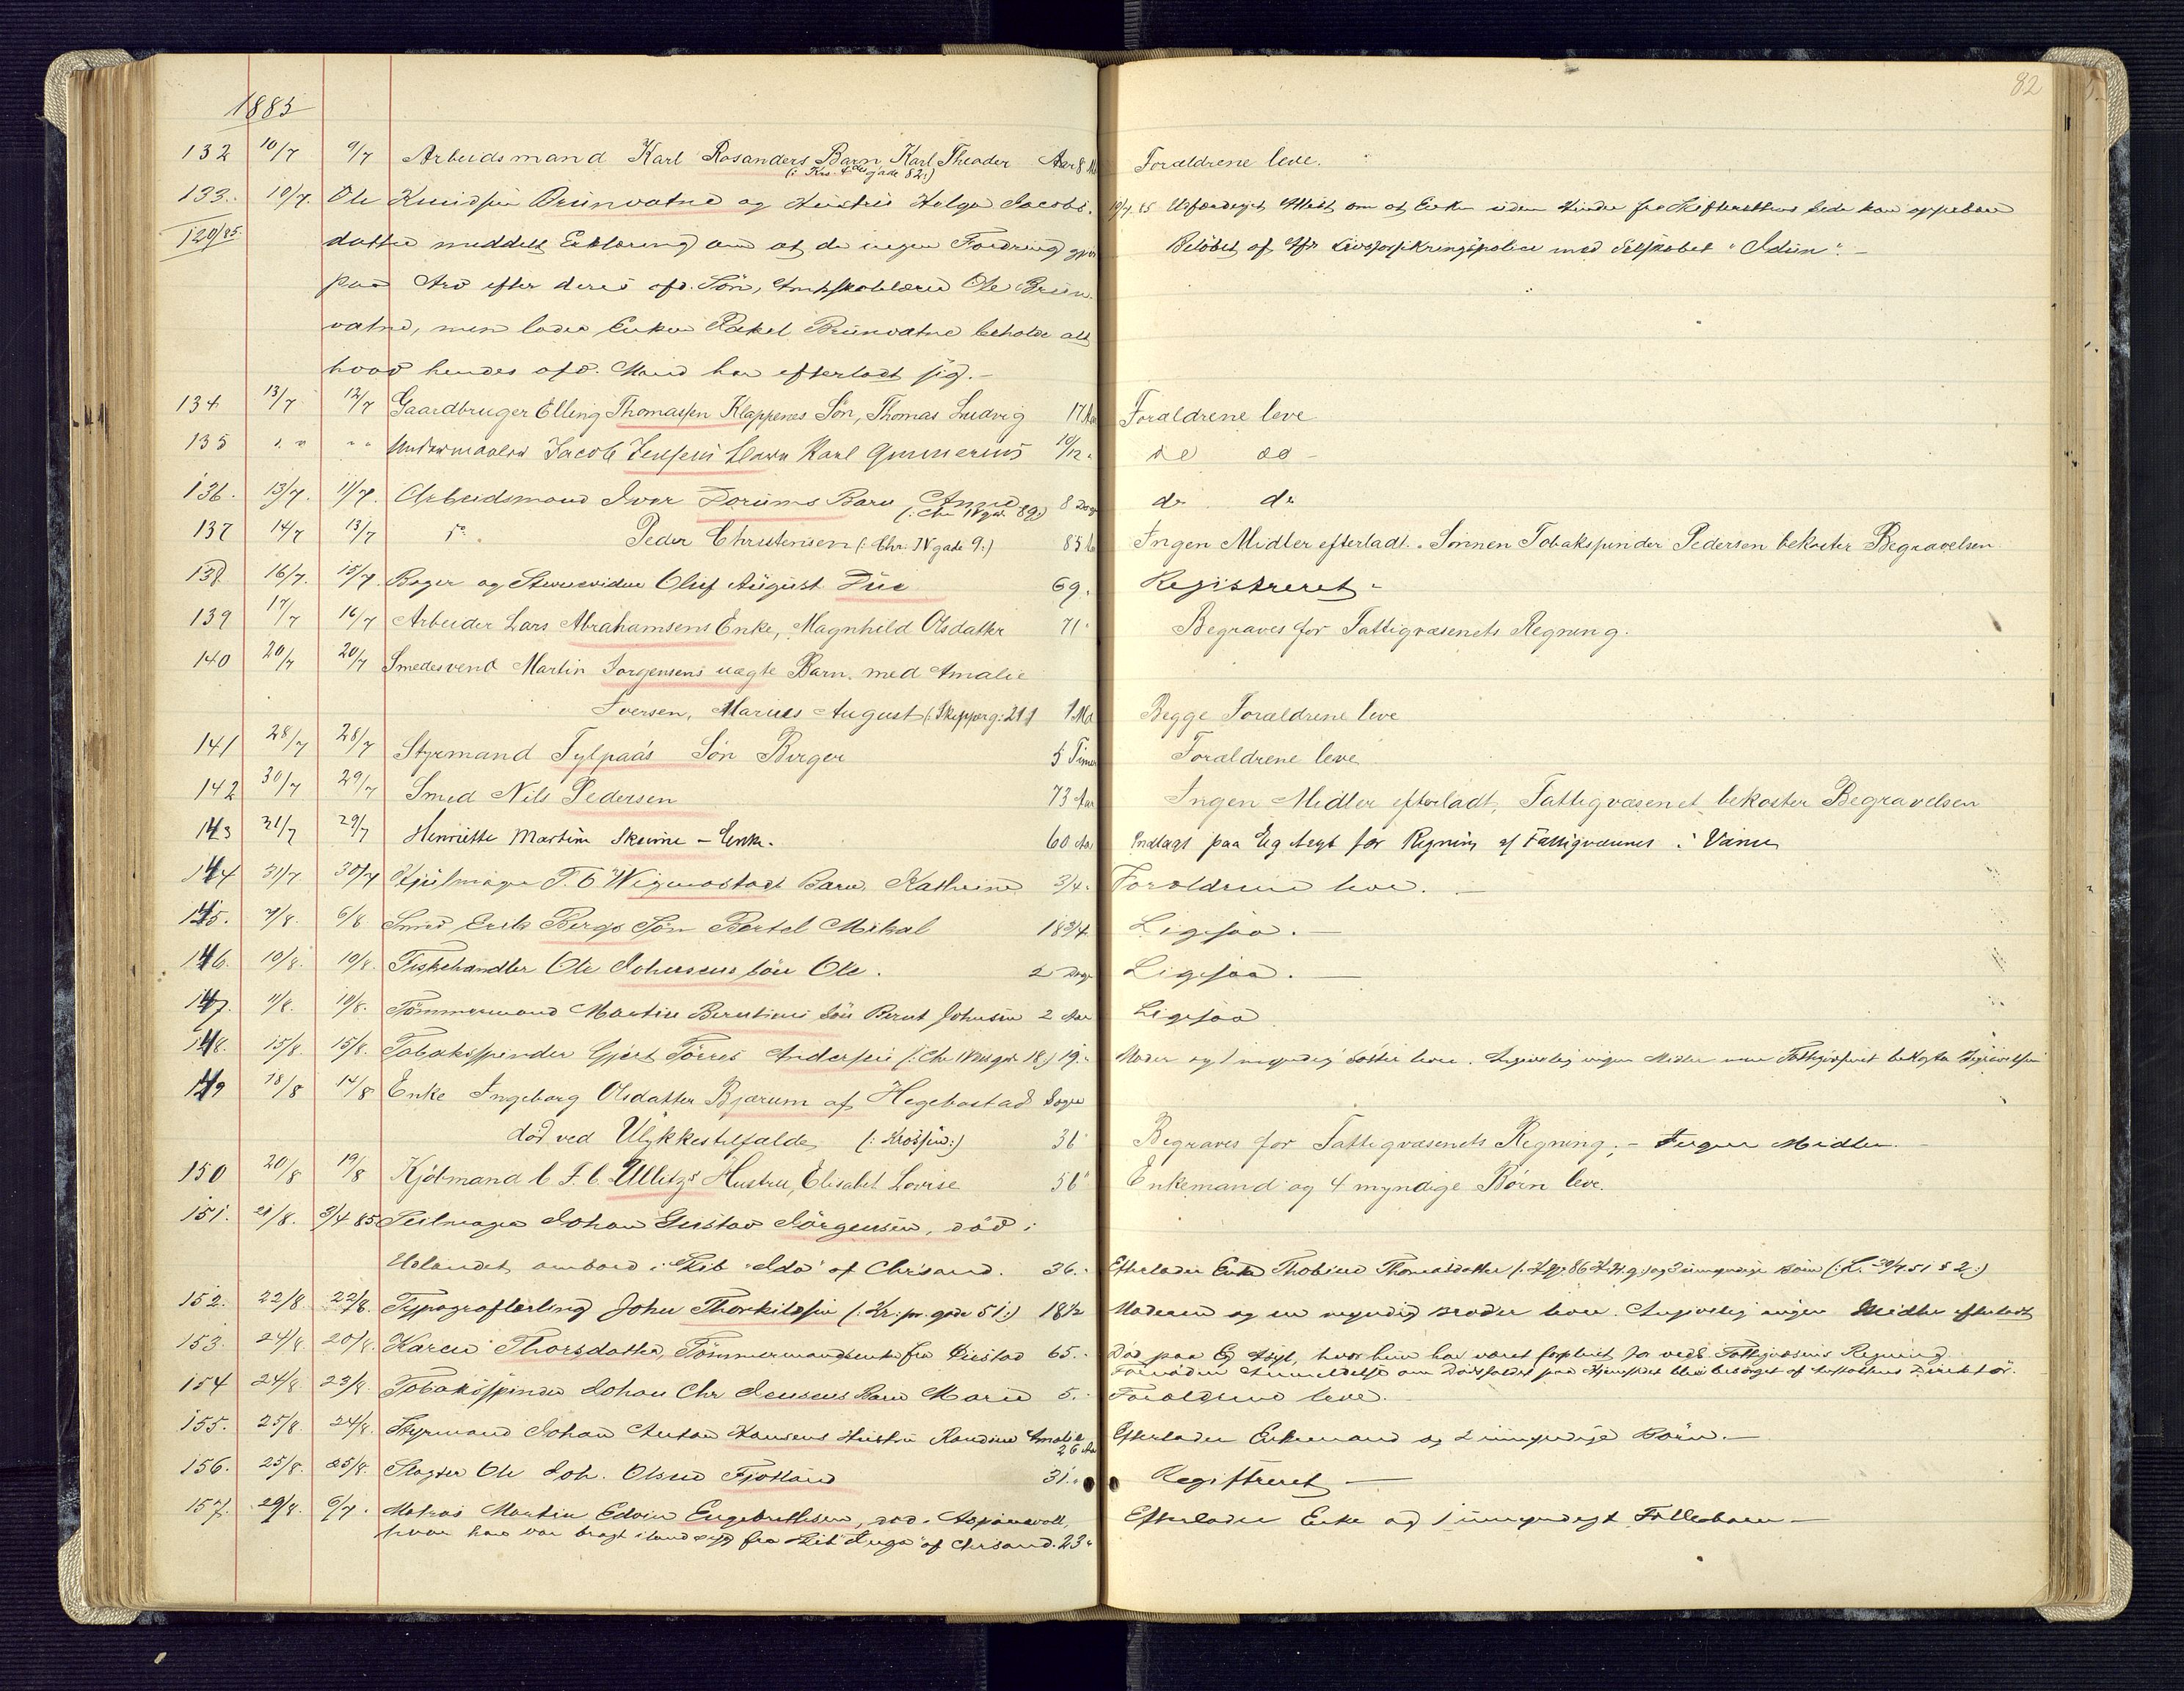 82
1885
132 10/7 9/7 Arbeidsmand Karl Rosanders Barn, Karl Theodor Aar 8 M Forældrene leve.
(: Krs. 4des gade 82:)
133. 10/7. Ole Knudsen Brunvatne og Hustru Helga Jacobs- 10/7 85 Udfærdiget Attest om at Enken uden Hinder fra Skifterettens Side kan oppebære
120/85 datter meddelt Erklæring om at de ingen Fordring gjør Beløbet af Afd. Livsforsikringspolice med Selskabet "Idun". -
paa Arv efter deres afd. Søn, Amtskolelærer Ole Brun-
vatne, men lader Enken Rakel Brunvatne beholde alt
hvad hendes afd. Mand har efterladt sig. -
134 13/7 12/7 Gaardbruger Elling Thomassen Klappenes Søn, Thomas Ludvig 17 Aar Forældrene leve
135 " " " " Undermaaler Jacob Jensens Barn Karl Gunnerius 10/12 " do do -
136. 13/7. 11/7. Arbeidsmand Ivar Dorums Barn Anne 8 Dage do do
(: Chr IV gad 89:)
137 14/7 13/7 do Peder Christensen (: Chr. IV gade 9:) 83 Aa Ingen Midler efterladt. Sønnen Tobakspinder Pedersen bekoster Begravelsen
138 16/7. 15/7. Bager og Steuewidue Oluf August Due 69. Registreret -
139 17/7 16/7 Arbeider Lars Abrahamsens Enke, Magnhild Olsdatter 71 " Begraves for Fattigvæsenets Regning.
140 20/7 20/7 Smedesvend Martin Jørgensens uægte Barn med Amalie
Iversen, Marius August (: Skipperg: 21 1 Md Begge Forældrene leve
141 28/7 28/7 Styrmand Tylpaas Søn Birger 5 Timer Forældrene leve
142 30/7 29/7 Smed Nils Pedersen 73 Aar Ingen Midler efterladt, Fattigvæsenet bekoster Begravelsen
143 31/7 29/7 Henriette Martine Skeime - Enke. 60 Aar Indlagt paa Eg Asyl for Regning af Fattigvæsenet i Vanse
144 31/7. 30/7 Hjulmager T. C Wigmostads Barn, Kathrine 3/4 " Forældrene leve. -
145. 7/8. 6/8 Smed Erik Bergs Søn Bertel Mikal 18 3/4 Ligesaa. -
146. 10/8. 10/8. Fiskehandler Ole Johnsens Søn Ole. 2 Dage Ligesaa. -
147. 11/8. 10/8. Tømmermand Martin Berntsens Søn Bernt Johnsen 2 Aar Ligesaa
148. 15/8. 15/8. Tobakspinder Gjert Tørres Andersen (: Chr IV des gade 18) 19. " Moder og 1 myndig Søster leve. Angivelig ingen Midler men Fattigvæsenet bekoster Begravelsen
149 18/8 14/8 Enke Ingeborg Olsdatter Bjærum af Hegebostad Sogn
død ved Ulykkestilfælde (: Krossen:) 31 " Begraves for Fattigvæsenets Regning; - Ingen Midler. -
150 20/8 19/8 Kjøbmand C. F. C. Ullitz's Hustru, Elisabet Lovise 56 " Enkemand og 4 myndige Børn leve.
151. 21/8. 3/4 85 Seilmager Johan Gustav Jørgensen, død i
Udlandet ombord i Skib "Ida" af Chrsand. 36. " Efterlader Enke Thobine Thomasdatter og 3 umyndige Børn (: L. 30/7 51 § 2:)
152. 22/8 22/8. Typograflærling John Thorkildsen (: Kr: pr. gade 51:) 18 1/2 Moderen og en myndig Broder lever. Angivelig ingen Midler efterladt
153. 24/8 20/8. Karen Thorsdatter, Tømmermandsenke fra Oiestad 65. " Død paa Eg Asyl, hvor hun har været forpleiet for vedk. Fattigvæsens Regning
Fornøden Anmeldelse om Dødsfaldet paa Hjemstedet blir besørget af Asylets Direktør.
154 24/8 23/8. Tobakspinder Johan Chr Jensens Barn Marie 5. " Forældrene leve.
155. 25/8. 24/8. Styrmand Johan Anton Hansens Hustru Randine Amalie Efterlader Enkemand og 2 umyndige Børn. -
26 Aar
156. 25/8. 25/8. Slagter Ole Joh. Olsen Fjotland 31. " Registreret -
157. 29/8. 6/7. Matros Martin Edvin Engebrethsen, død i Aspinwall, Efterlader Enke og 1 umyndigt Fællesbarn -
hvor han var bragt iland syg fra Skib "Inga" af Chrsand. 23 "